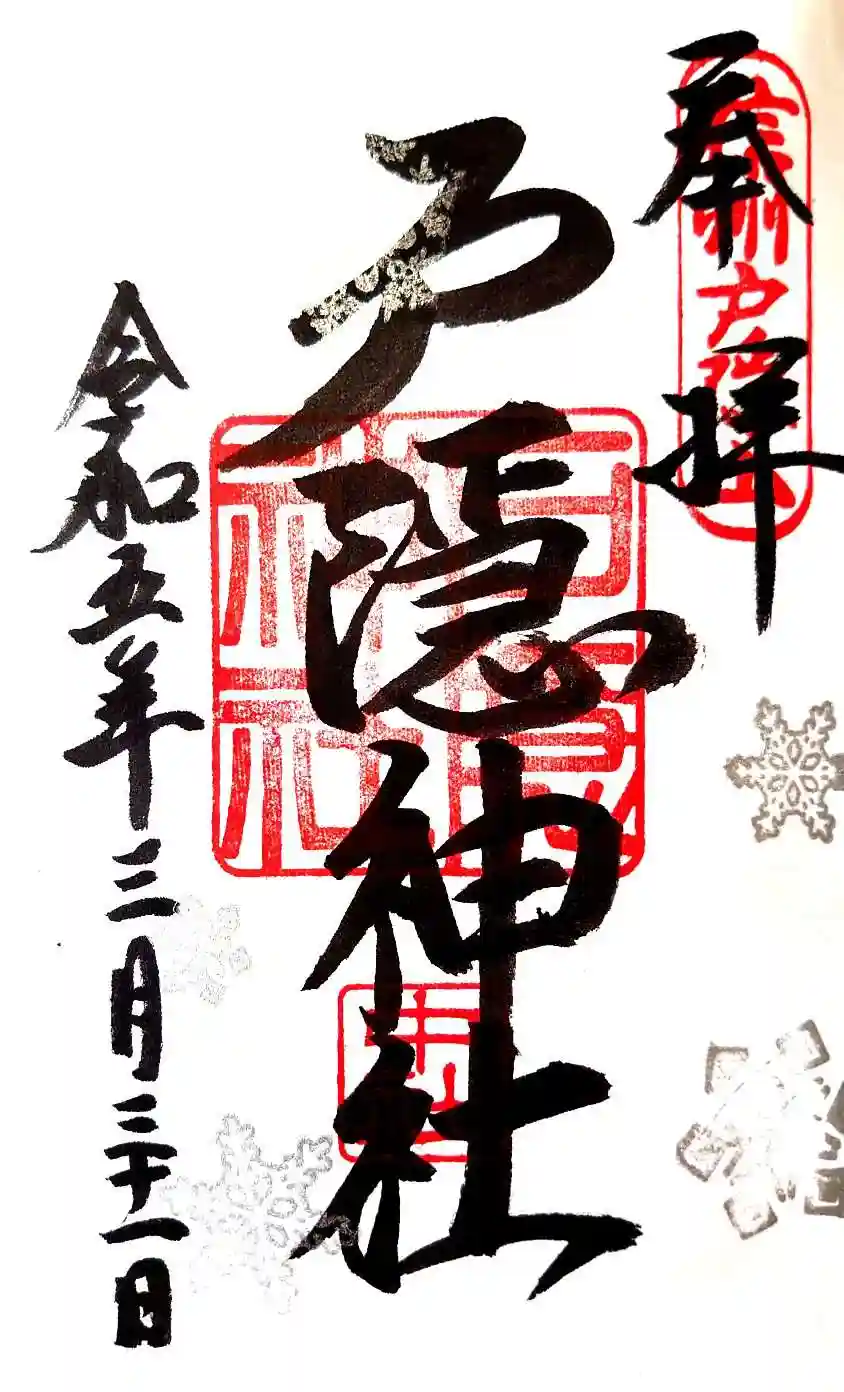 奉拝
信州戸隠山
戸隠神社
戸隠神社
令和五年三月三十一日